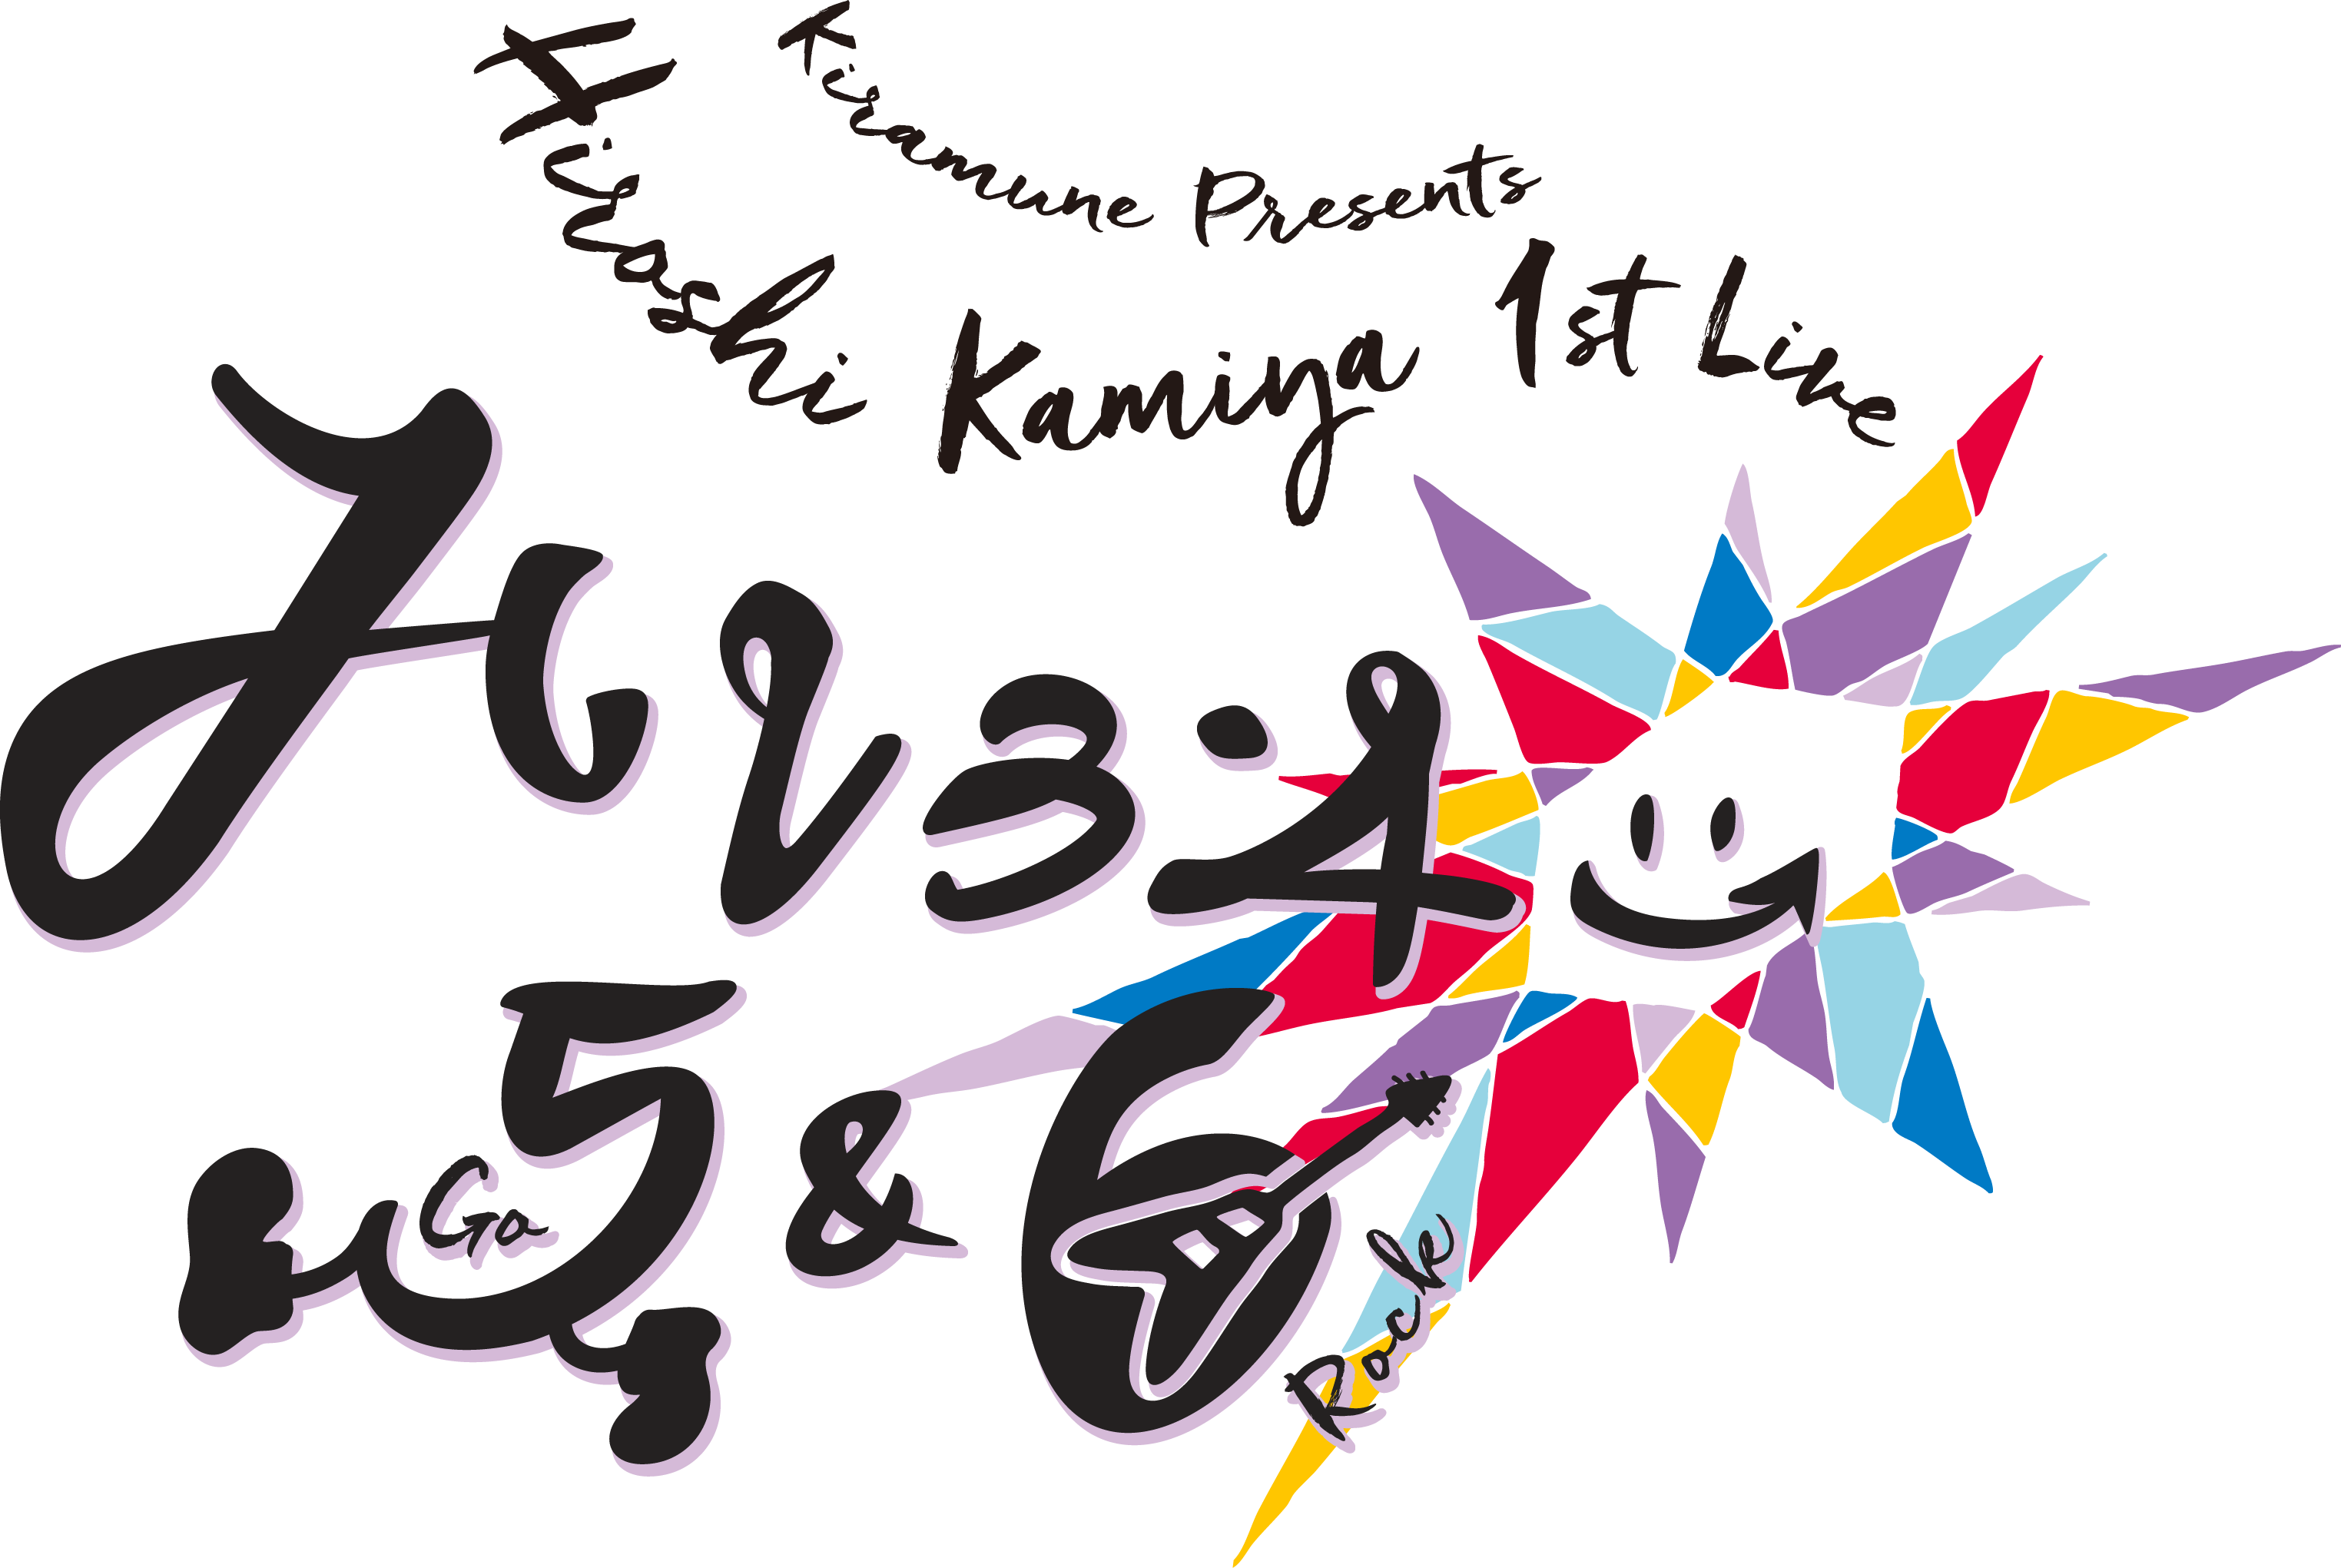 Kiramune Presents
Hiroshi Kamiya 1st Live
3・4
5 & 6
Go
Rock